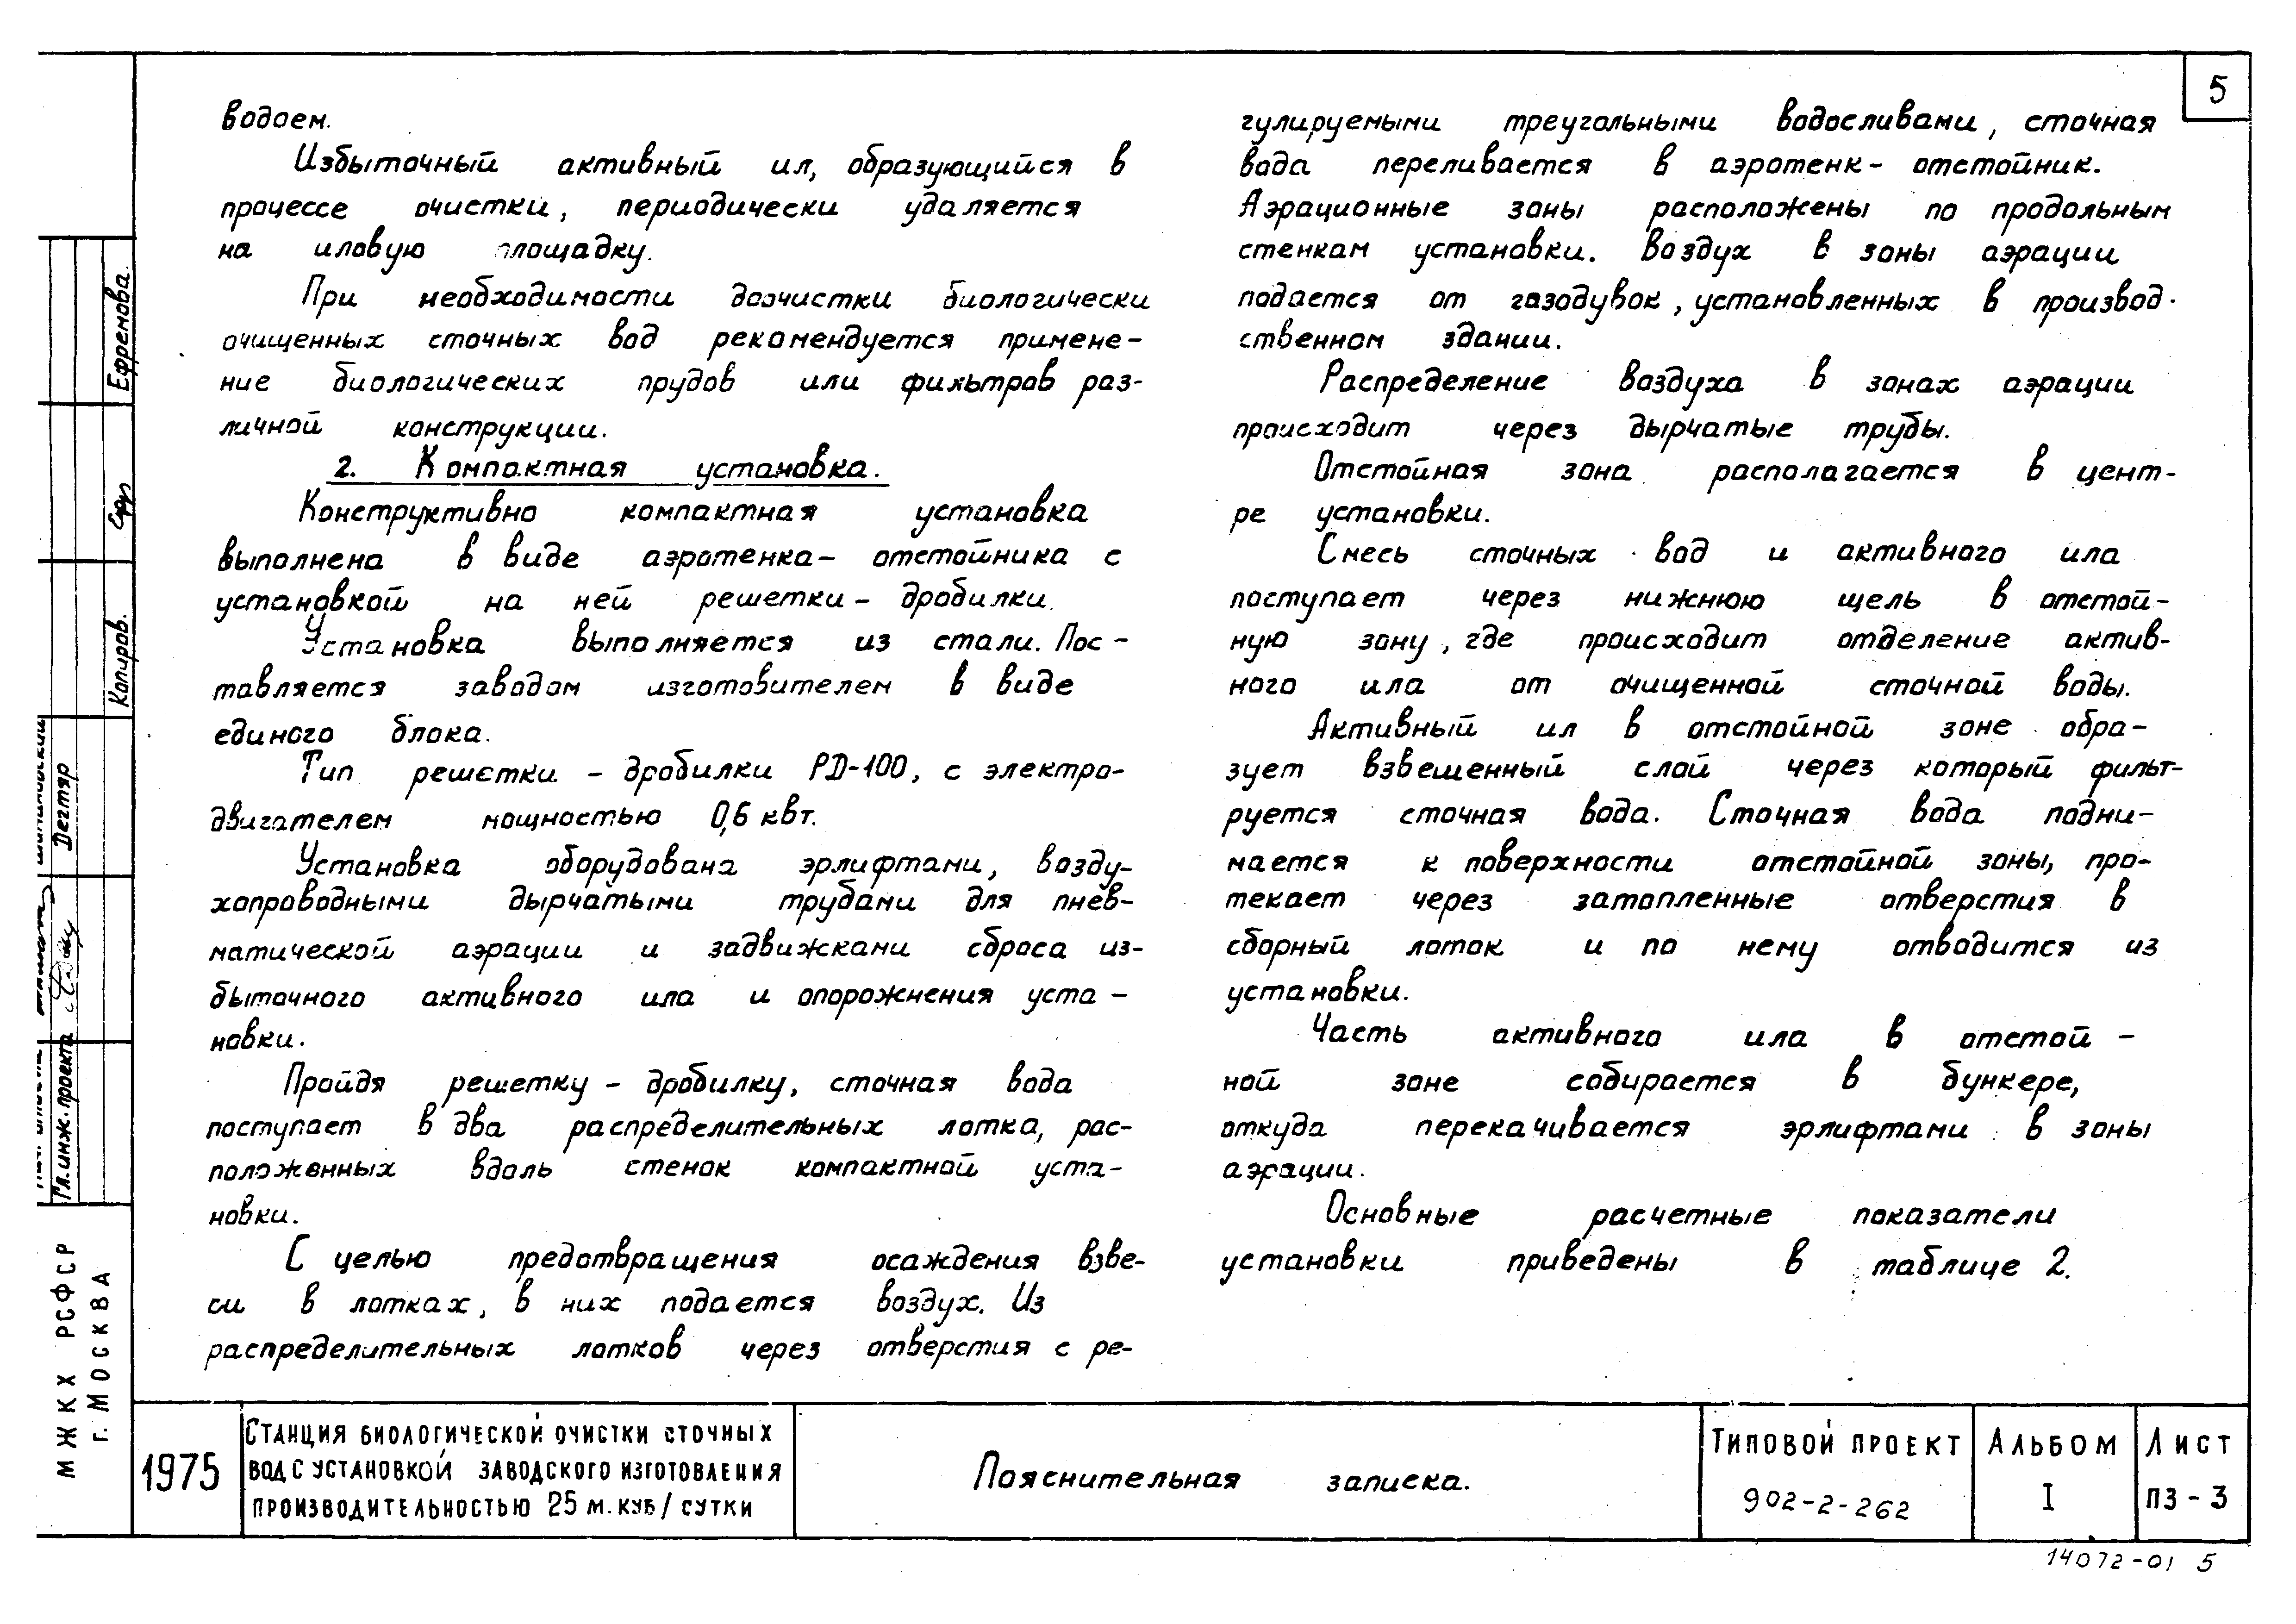 5
водоем.
Избыточный активный ил, образующийся в
процессе очистки, периодически удаляется
на иловую площадку.
При необходимости доочистки биологически
очищенных сточных вод рекомендуется примене-
ние биологических прудов или фильтров раз-
личной конструкции.
2. Компактная установка.
Конструктивно компактная установка
выполнена в виде аэротенка- отстойника с
установкой на ней решетки- дробилки.
Установка выполняется из стали. Пос-
тавляется заводом изготовителем в виде
единого блока.
Тип решетки - дробилки РД-100, с электро-
двигателем мощностью 0,6 квт.
Установка оборудована эрлифтами, возду-
хопроводными дырчатыми трубами для пнев-
матической аэрации и задвижками сброса из-
быточного активного ила и опорожнения уста-
новки.
Пройдя решетку - дробилку, сточная вода
поступает в два распределительных лотка, рас-
положенных вдоль стенок компактной уста-
новки.
С целью предотвращения осаждения взве-
си в лотках, в них подается воздух. Из
распределительных лотков через отверстия с ре-
гулируемыми треугольными водосливами, сточная
вода переливается в аэротенк- отстойник.
Аэрационные зоны расположены по продольным
стенкам установки. Воздух в зоны аэрации
подается от газодувок, установленных в производ-
ственном здании.
Распределение воздуха в зонах аэрации
происходит через дырчатые трубы.
Отстойная зона располагается в цент-
ре установки.
Смесь сточных вод и активного ила
поступает через нижнюю щель в отстой-
ную зону, где происходит отделение актив-
ного ила от очищенной сточной воды.
Активный ил в отстойной зоне обра-
зует взвешенный слой через который фильт-
руется сточная вода. Сточная вода подни-
мается к поверхности отстойной зоны, про-
текает через затопленные отверстия в
сборный лоток и по нему отводится из
установки.
Часть активного ила в отстой-
ной зоне собирается в бункере,
откуда перекачивается эрлифтами в зоны
аэрации.
Основные расчетные показатели
установки приведены в таблице 2.
Ефремова.
Копиров.
Дегтяр
Гл. инж. проекта
МЖКХ РСФСР
г. Москва
1975
Станция биологической очистки сточных
вод с установкой заводского изготовления
производительностью 25 м.куб/сутки
Пояснительная записка.
Типовой проект
902-2-262
Альбом
I
Лист
ПЗ-3
14072-01 5